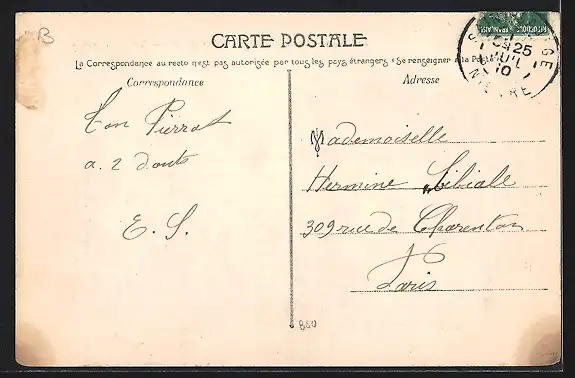 B
CARTE POSTALE
La Correspondance au recto n'est pas autorisée par tous les pays étrangers (Se renseigner à la Poste)
Correspondance
Adresse
RÉPUBLIQUE FRANÇAISE
25
JUIL
10
NIEVRE
Ton Pierrot
a. 2 douts
E. S.
Mademoiselle
Hermine Cibiale
309 rue de Charenton
Paris
860